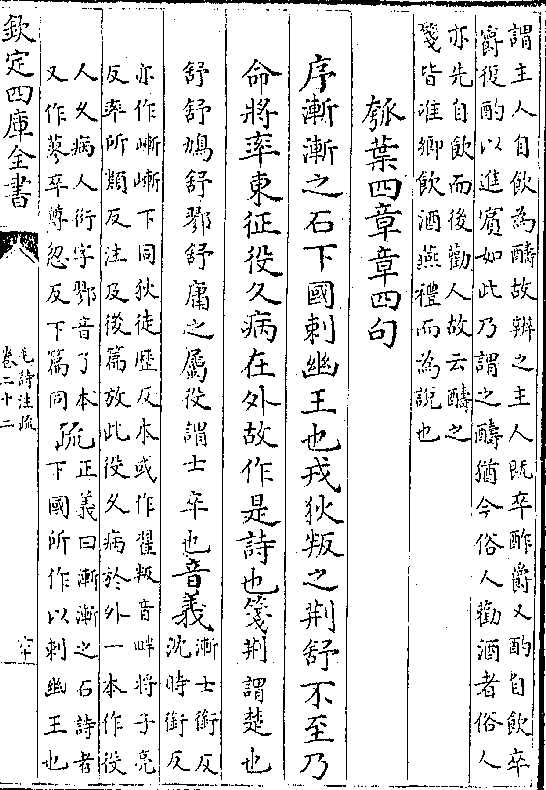 謂主人自飲為醻故辨之主人既卒酢爵又酌自飲卒
爵復酌以進賓如此乃謂之醻猶今俗人勸酒者俗人
亦先自飲而後勸人故云醻之
箋皆准鄉飲酒燕禮而為說也
瓠葉四章章四句
序漸漸之石下國刺幽王也戎狄叛之荆舒不至乃
命將率東征役久病在外故作是詩也箋荆謂楚也
舒舒鳩舒鄝舒庸之屬役謂士卒也音義漸士銜反
沈時銜反
亦作嶃嶃下同狄徒歷反本或作翟叛音畔將子亮
反率所類反注及後篇放此役久病於外一本作役
人久病人衍字鄝音了本
又作蓼卒尊忽反下篇同
疏正義曰漸漸之石詩者
下國所作以刺幽王也
欽定四庫全書
毛詩注疏
卷二十二